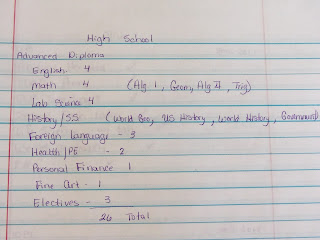 High School
Advanced Diploma
English 4
Math 4 (Alg 1, Geom, Alg II, Trig)
Lab 4
History/SS (World Geo, US History, World History, Government)
Foreign language - 3
Health/PE - 2
Personal Finance 1
Fine Art - 1
Electives - 3
26 Total